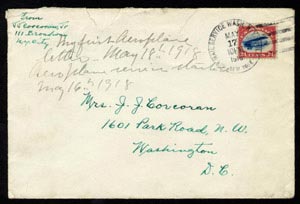 From
111 Broadway
N.Y. City
My first Aeroplane
letter - May 18th 1918
Aeroplane service started
May 16th 1918
MAY
17
Mrs. J. J. Corcoran
1601 Park Road, N. W.
Washington
D. C.